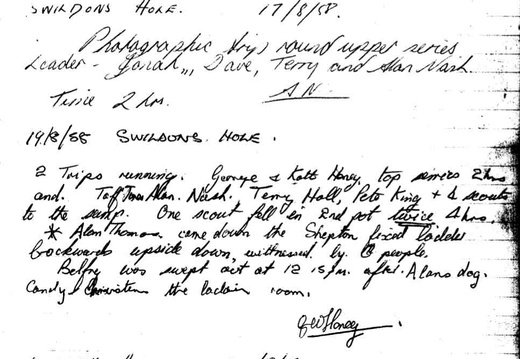 SWILDONS HOLE. 17/8/58.
Photographic trip round upper series
Leader - Jonah,,, Dave, Terry and Alan Nash
Time 2 hrs. A N.
19/8/58 SWILDONS HOLE.
2 Trips running. George & Kath Honey, top series 2 hrs
and. Taff Alan. Nash. Terry Hall, Pete King + 4 scouts
to the sump. One scout fell in 2nd pot twice 4 hrs.
* Alan Thomas came down the Shepton fixed ladder
backwards upside down, witnessed by people.
Belfry was swept out at 12 15 after Alans dog.
Candy the room.
G W Honey.